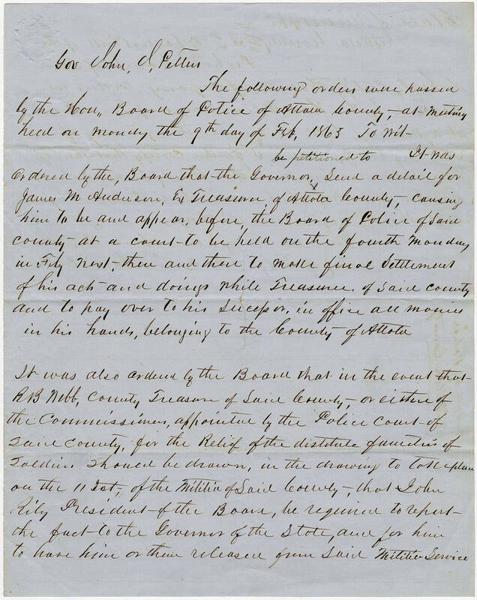 Gov John, J, Pettus
The following orders were passed
by the Hon,, Board of Police of Attala County, at meeting
held on Monday the 9th day of Feb, 1863 To Wit
be petitioned to It was
ordered by the, Board that the Governor, Send a detail for
James M Anderson, Ex Treasurer, of Attala County, causing
him to be and appear, before, the Board of Police of Said
county at a court to be held on the fourth Monday
in Feby next, then and there to make final Settlement
of his acts and doings while Treasurer of Said county
and to pay over to his Successor, in office all monies
in his hands, belonging to the County of Attala
It was also ordered by the Board that in the event that
R B Webb, County Treasurer of Said County, or either of
the Commissioners, appointed by the Police Court of
Said county, for the Relief of the distitute families of
Soldiers Should be drawn, in the drawing to take place
on the 11 Inst, of the Militia of Said County, that John
Rily President of the Board, be required to report
the fact to the Governor of the State, and for him
to have him or them released from Said Militia Service